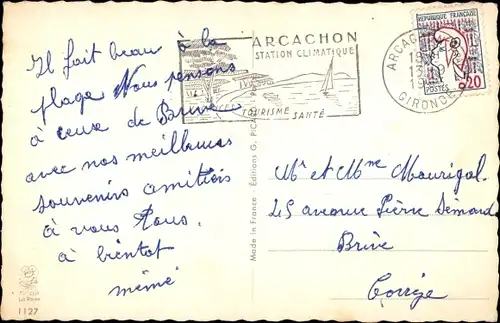 Il fait beau à la
plage Nous pensons
à ceux de Brive
avec nos meilleures
souvenirs amitiés
à vous Tous.
à bientôt
mémé
1127
Made in France Éditions G. PIC
ARCACHON
STATION CLIMATIQUE
TOURISME SANTÉ
GIRONDE
REPUBLIQUE FRANÇAISE
POSTES
0,20
Mr et Mme Maurigal.
45 avenue Pierre Sémard
Brive
Corrèze